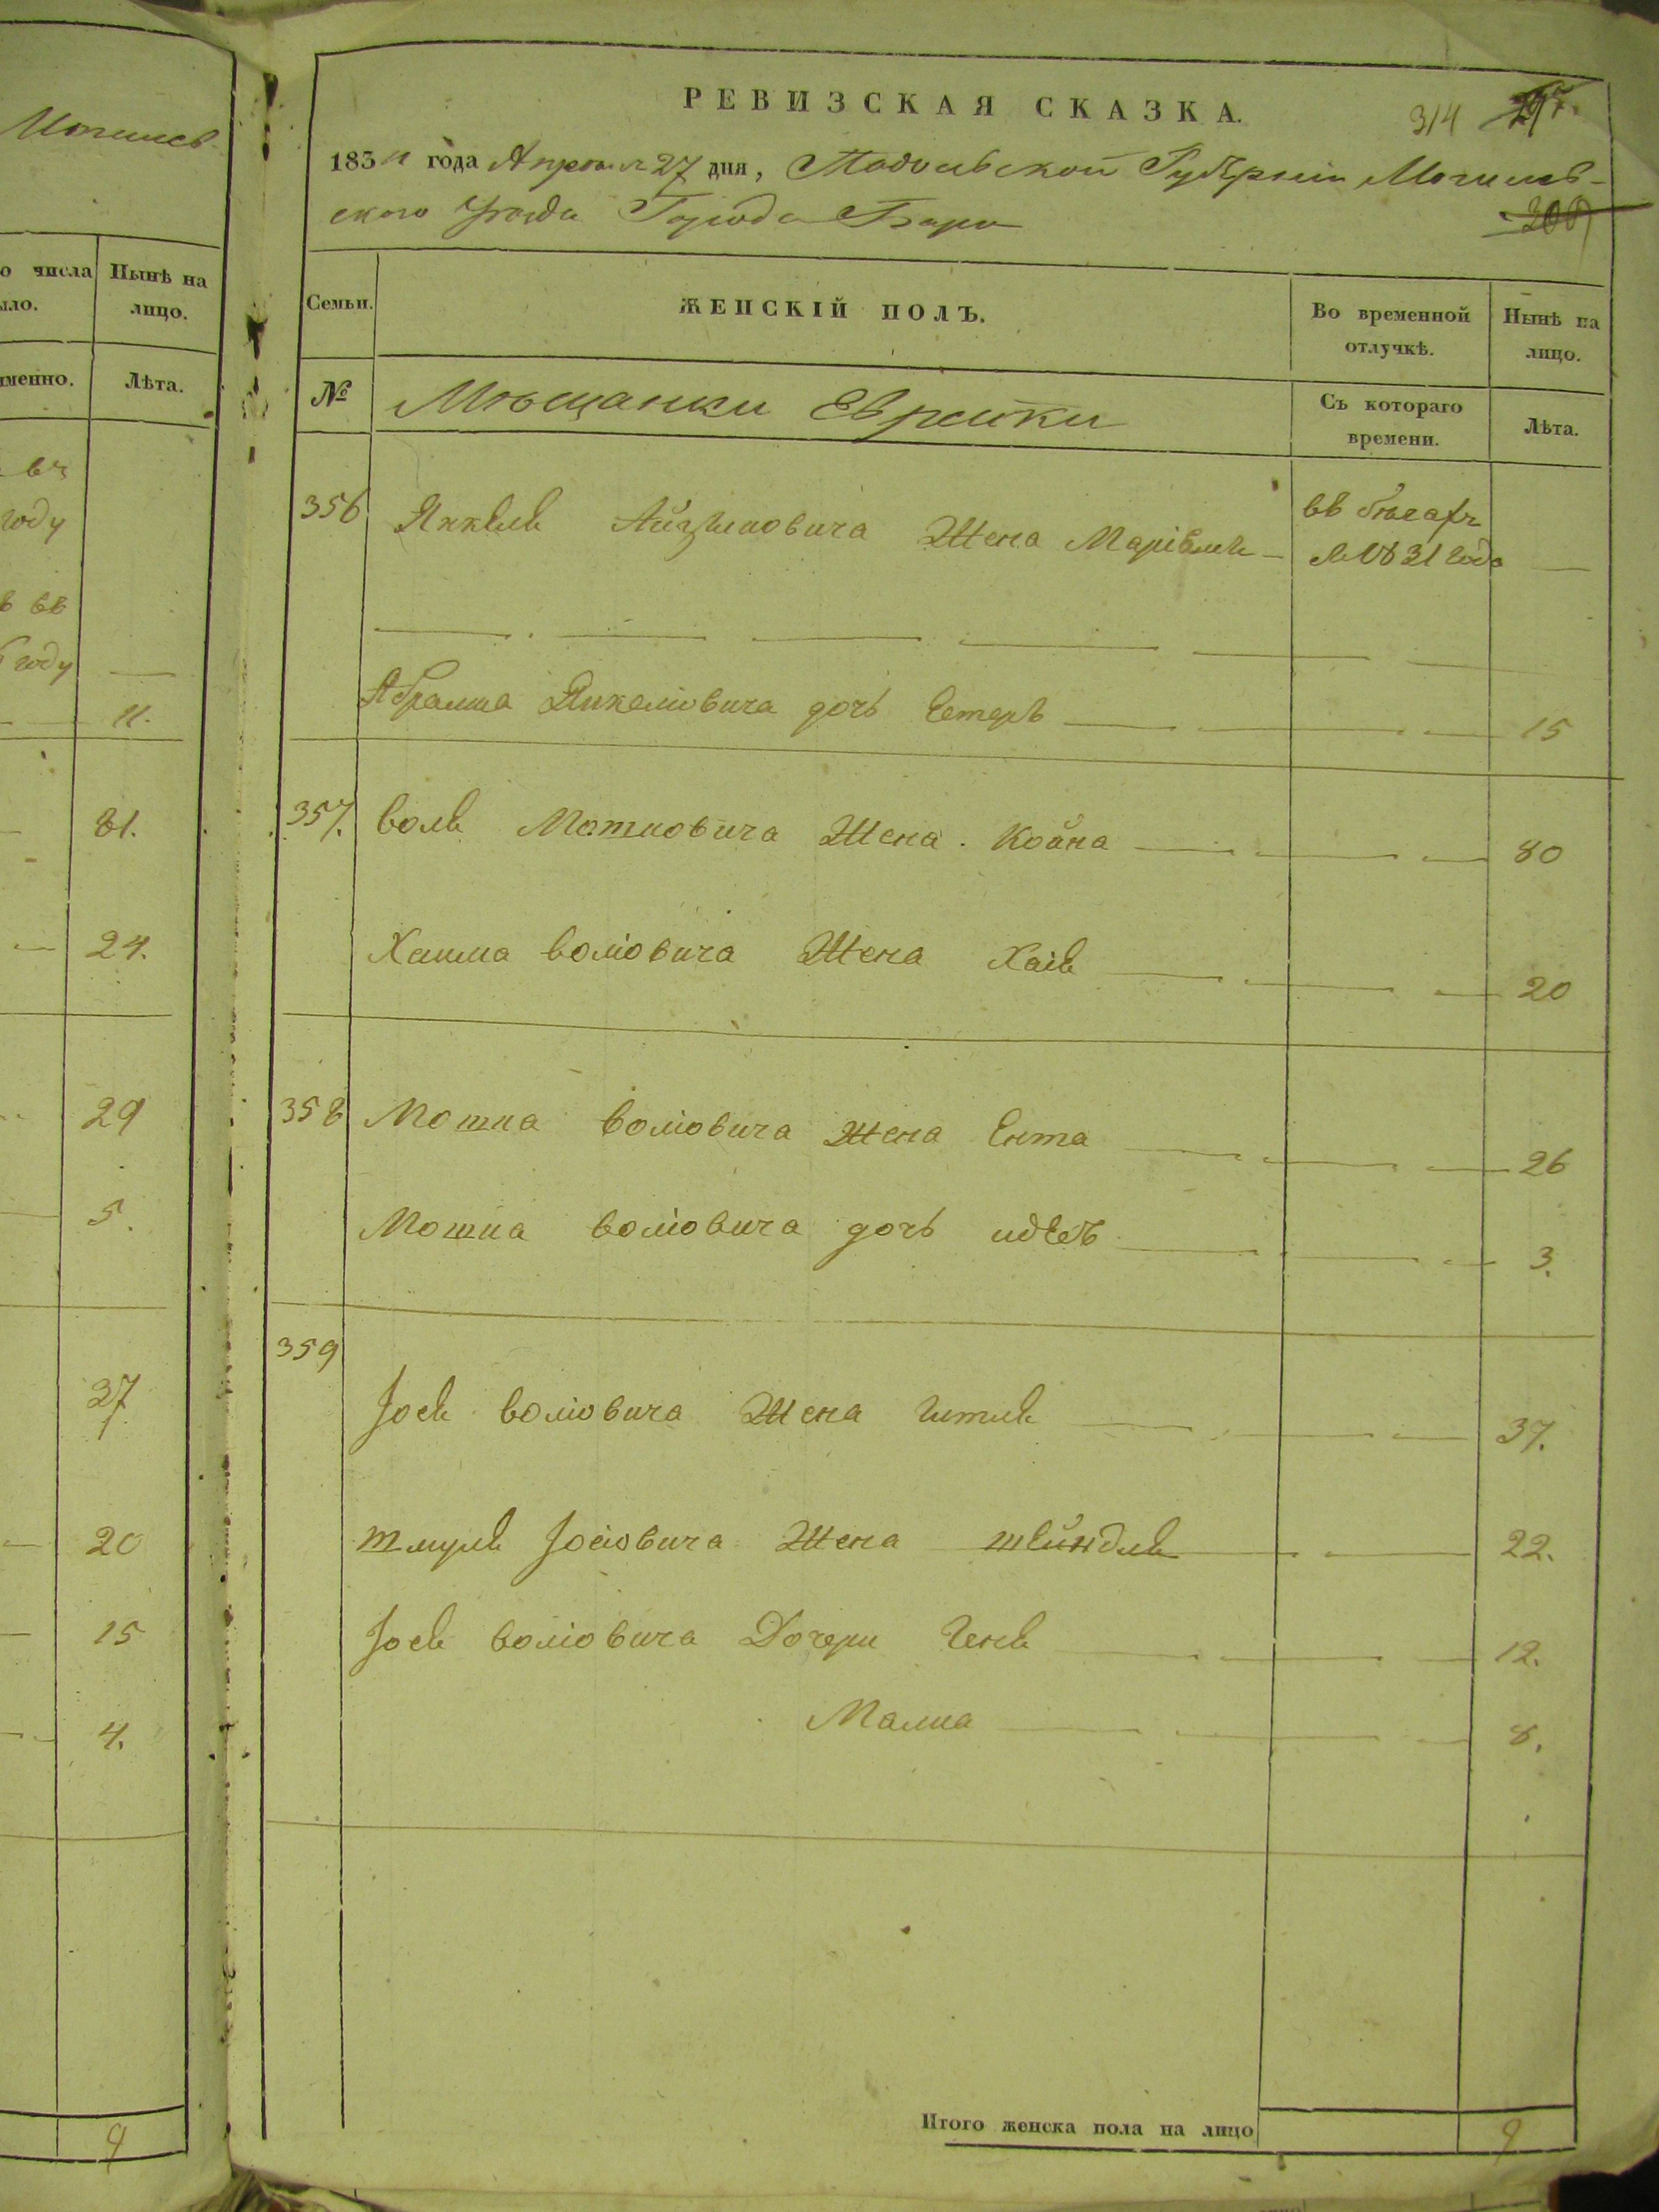 Могилев
о числа
ыло.
Нынѣ на
лицо.
именно.
Лѣта.
въ
году
въ
году —
11.
81.
24.
29
5.
37
20
15
4.
9
РЕВИЗСКАЯ СКАЗКА.
314
1834 года Апреля 27 дня, Подольской Губерніи Могилев-
ского уезда Города Бара
Семьи.
ЖЕНСКІЙ ПОЛЪ.
Во временной
отлучкѣ.
Нынѣ на
лицо.
№
Мѣщанки Еврейки
Съ котораго
времени.
Лѣта.
356 Янкеля Айзиковича Жена Маріемъ — въ бѣгахъ
съ 1831 года —
Абрамка Янкелювича дочь Естеръ — 15
357. Волѣ Мошковича Жена Койна — 80
Хаима Волювича Жена Хаія — 20
358 Мошка Волювича Жена Ента — 26
Мошка Волювича дочь — 3.
359
Іося Волювича Жена Гитля — 37.
Шмуля Іосювича Жена Шейндля — 22.
Іося Волювича Дочери Геня — 12.
Малка — 8.
Итого женска пола на лицо 9